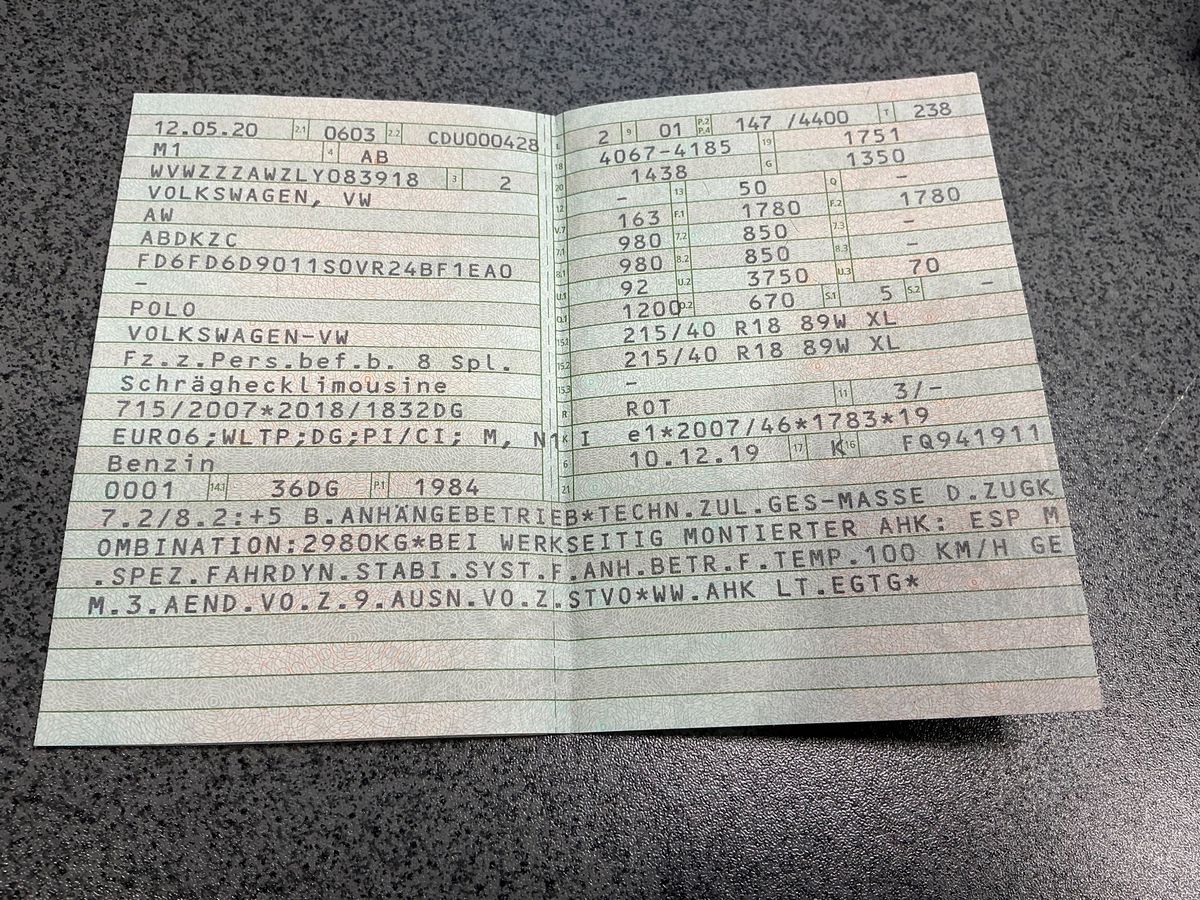 12.05.20 2.1 0603 2.2 CDU000428
M1 4 AB
WVWZZZAWZLY083918 3 2
VOLKSWAGEN, VW
AW
ABDKZC
FD6FD6D9011S0VR24BF1EA0
–
POLO
VOLKSWAGEN-VW
Fz.z.Pers.bef.b. 8 Spl.
Schräghecklimousine
715/2007*2018/1832DG
EURO6;WLTP;DG;PI/CI; M, N1 I
Benzin
0001 14.1 36DG P.1 1984
L 2 9 01 P.2 P.4 147 /4400 T 238
18 4067-4185 19 1751
20 1438 G 1350
12 – 13 50 Q –
V.7 163 F.1 1780 F.2 1780
7.1 980 7.2 850 7.3 –
8.1 980 8.2 850 8.3 –
U.1 92 U.2 3750 U.3 70
O.1 1200 O.2 670 S.1 5 S.2 –
15.1 215/40 R18 89W XL
15.2 215/40 R18 89W XL
15.3 –
R ROT 11 3/–
K e1*2007/46*1783*19
6 10.12.19 17 K 16 FQ941911
21
7.2/8.2:+5 B.ANHÄNGEBETRIEB*TECHN.ZUL.GES-MASSE D.ZUGK
OMBINATION:2980KG*BEI WERKSEITIG MONTIERTER AHK: ESP M
.SPEZ.FAHRDYN.STABI.SYST.F.ANH.BETR.F.TEMP.100 KM/H GE
M.3.AEND.VO.Z.9.AUSN.VO.Z.STVO*WW.AHK LT.EGTG*